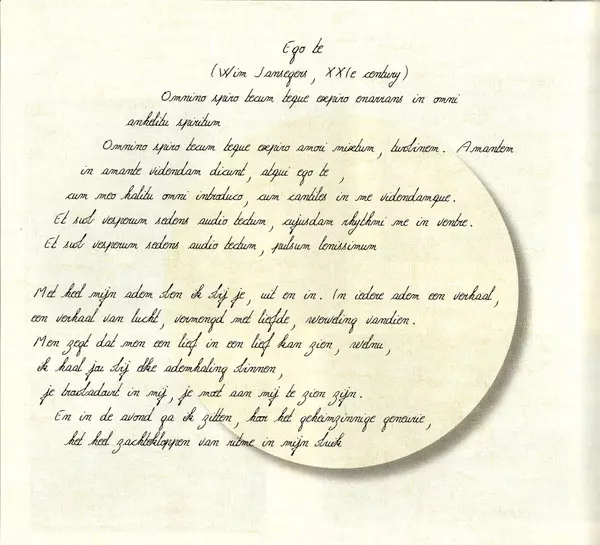 Ego te
(Wim Jansegers, XXIe century)
Omnino spiro tecum teque expiro enarrans in omni
anhelitu spiritum
Omnino spiro tecum teque expiro amori mixtum, turbinem. Amantem
in amante videndam dicunt, atqui ego te,
cum meo halitu omni introduco, cum cantites in me videndamque.
Et sub vesperum sedens audio tectum, cujusdam rhythmi me in ventre.
Et sub vesperum sedens audio tectum, pulsum lenissimum
Met heel mijn adem ben ik bij je, uit en in. In iedere adem een verhaal,
een verhaal van lucht, vermengd met liefde, werveling vandien.
Men zegt dat men een lief in een lief kan zien, welnu,
ik haal jou bij elke ademhaling binnen,
je troubadourt in mij, je moet aan mij te zien zijn.
En in de avond ga ik zitten, hoor het geheimzinnige
het heel zachte kloppen van ritme in mijn buik